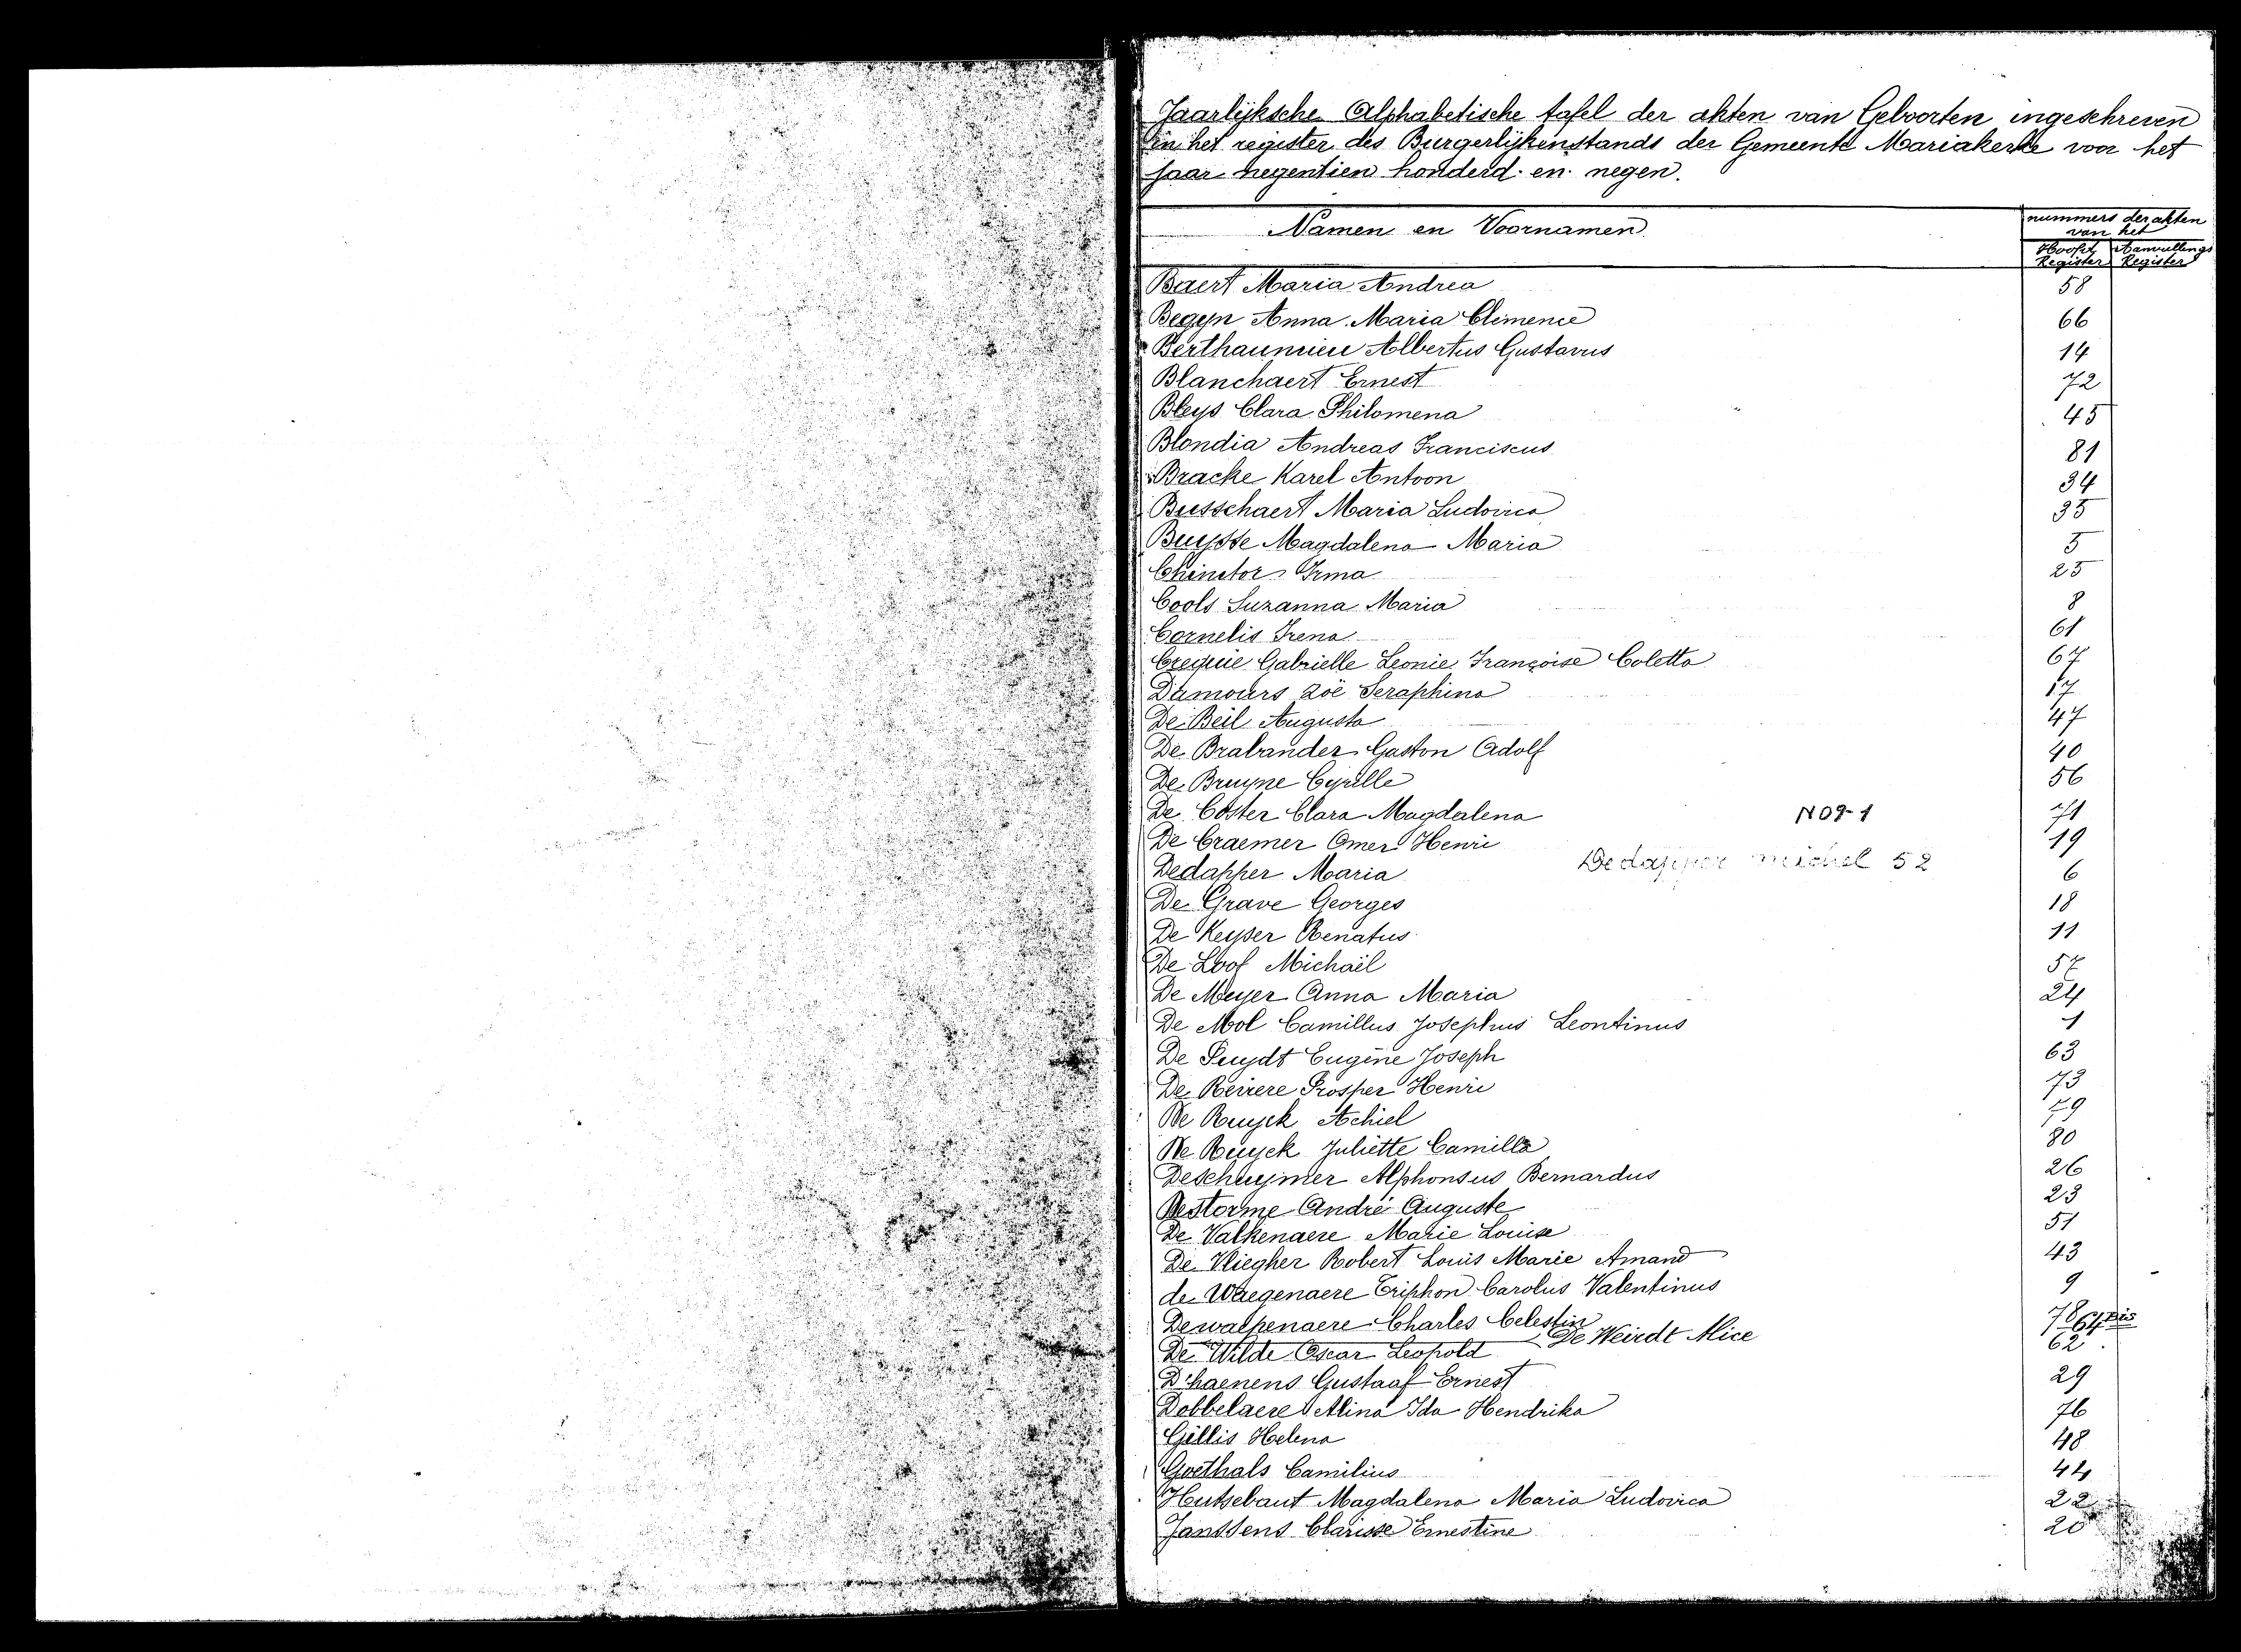 Jaarlijksche Alphabetische tafel der akten van Geboorten ingeschreven
in het register des Burgerlijkenstands der Gemeente Mariakerke voor het
jaar negentien honderd en negen.
Namen en Voornamen
nummers der akten
van het
Hoofd Aanvullings
Register Register
Baert Maria Andrea 58
Begyn Anna Maria Clémence 66
Berthaumieu Albertus Gustavus 14
Blanchaert Ernest 72
Bleys Clara Philomena 45
Blondia Andreas Franciscus 81
Bracke Karel Antoon 34
Busschaert Maria Ludovica 35
Buysse Magdalena Maria 5
Chinctor Irma 25
Cools Suzanna Maria 8
Cornelis Irena 61
Crequie Gabrielle Leonie Françoise Coletta 67
Damours Zoë Seraphina 17
De Beil Augusta 47
De Brabander Gaston Adolf 40
De Bruyne Cyrille 56
De Coster Clara Magdalena N09-1 71
De Craemer Omer Henri 19
Dedapper michel 52
Dedapper Maria 6
De Grave Georges 18
De Keyser Renatus 11
De Loof Michaël 57
De Meyer Anna Maria 24
De Mol Camillus Josephus Leontinus 1
De Puydt Eugène Joseph 63
De Reivere Prosper Henri 73
De Ruyck Achiel 79
De Ruyck Juliette Camilla 80
Deschuymer Alphonsus Bernardus 26
Destorme André Auguste 23
De Valkenaere Marie Louise 51
De Vliegher Robert Louis Marie Amand 43
de Waegenaere Triphon Carolus Valentinus 9
Dewalpenaere Charles Celestin 78
De Weirdt Alice 64 bis
De Wilde Oscar Leopold 62
D'haenens Gustaaf Ernest 29
Dobbelaere Alina Ida Hendrika 76
Gillis Helena 48
Goethals Camilius 44
Hutsebaut Magdalena Maria Ludovica 22
Janssens Clarisse Ernestine 20